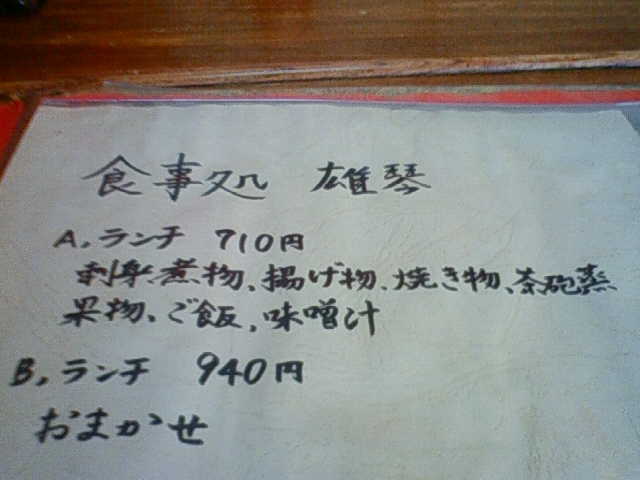 食事処 雄琴
A,ランチ 710円
刺身、煮物、揚げ物、焼き物、茶碗蒸
果物、ご飯、味噌汁
B,ランチ 940円
おまかせ